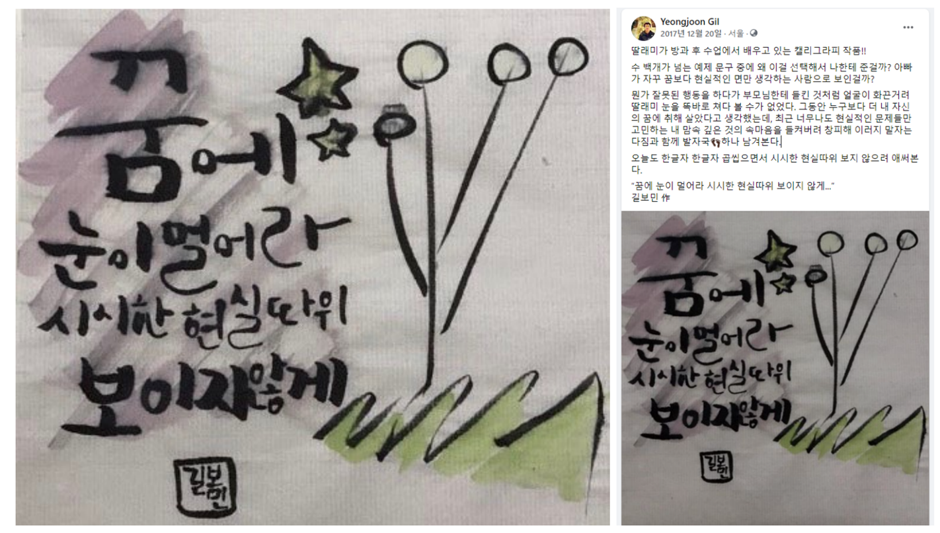 꿈에
눈이 멀어라
시시한 현실따위
보이지않게
길보민
Yeongjoon Gil
2017년 12월 20일 · 서울 ·
딸래미가 방과 후 수업에서 배우고 있는 캘리그라피 작품!!
수 백개가 넘는 예제 문구 중에 왜 이걸 선택해서 나한테 준걸까? 아빠
가 자꾸 꿈보다 현실적인 면만 생각하는 사람으로 보인걸까?
뭔가 잘못된 행동을 하다가 부모님한테 들킨 것처럼 얼굴이 화끈거려
딸래미 눈을 똑바로 쳐다 볼 수가 없었다. 그동안 누구보다 더 내 자신
의 꿈에 취해 살았다고 생각했는데, 최근 너무나도 현실적인 문제들만
고민하는 내 맘속 깊은 것의 속마음을 들켜버려 창피해 이러지 말자는
다짐과 함께 발자국👣하나 남겨본다.
오늘도 한글자 한글자 곱씹으면서 시시한 현실따위 보지 않으려 애써본
다.
"꿈에 눈이 멀어라 시시한 현실따위 보이지 않게..."
길보민 作
꿈에
눈이 멀어라
시시한 현실따위
보이지않게
길보민